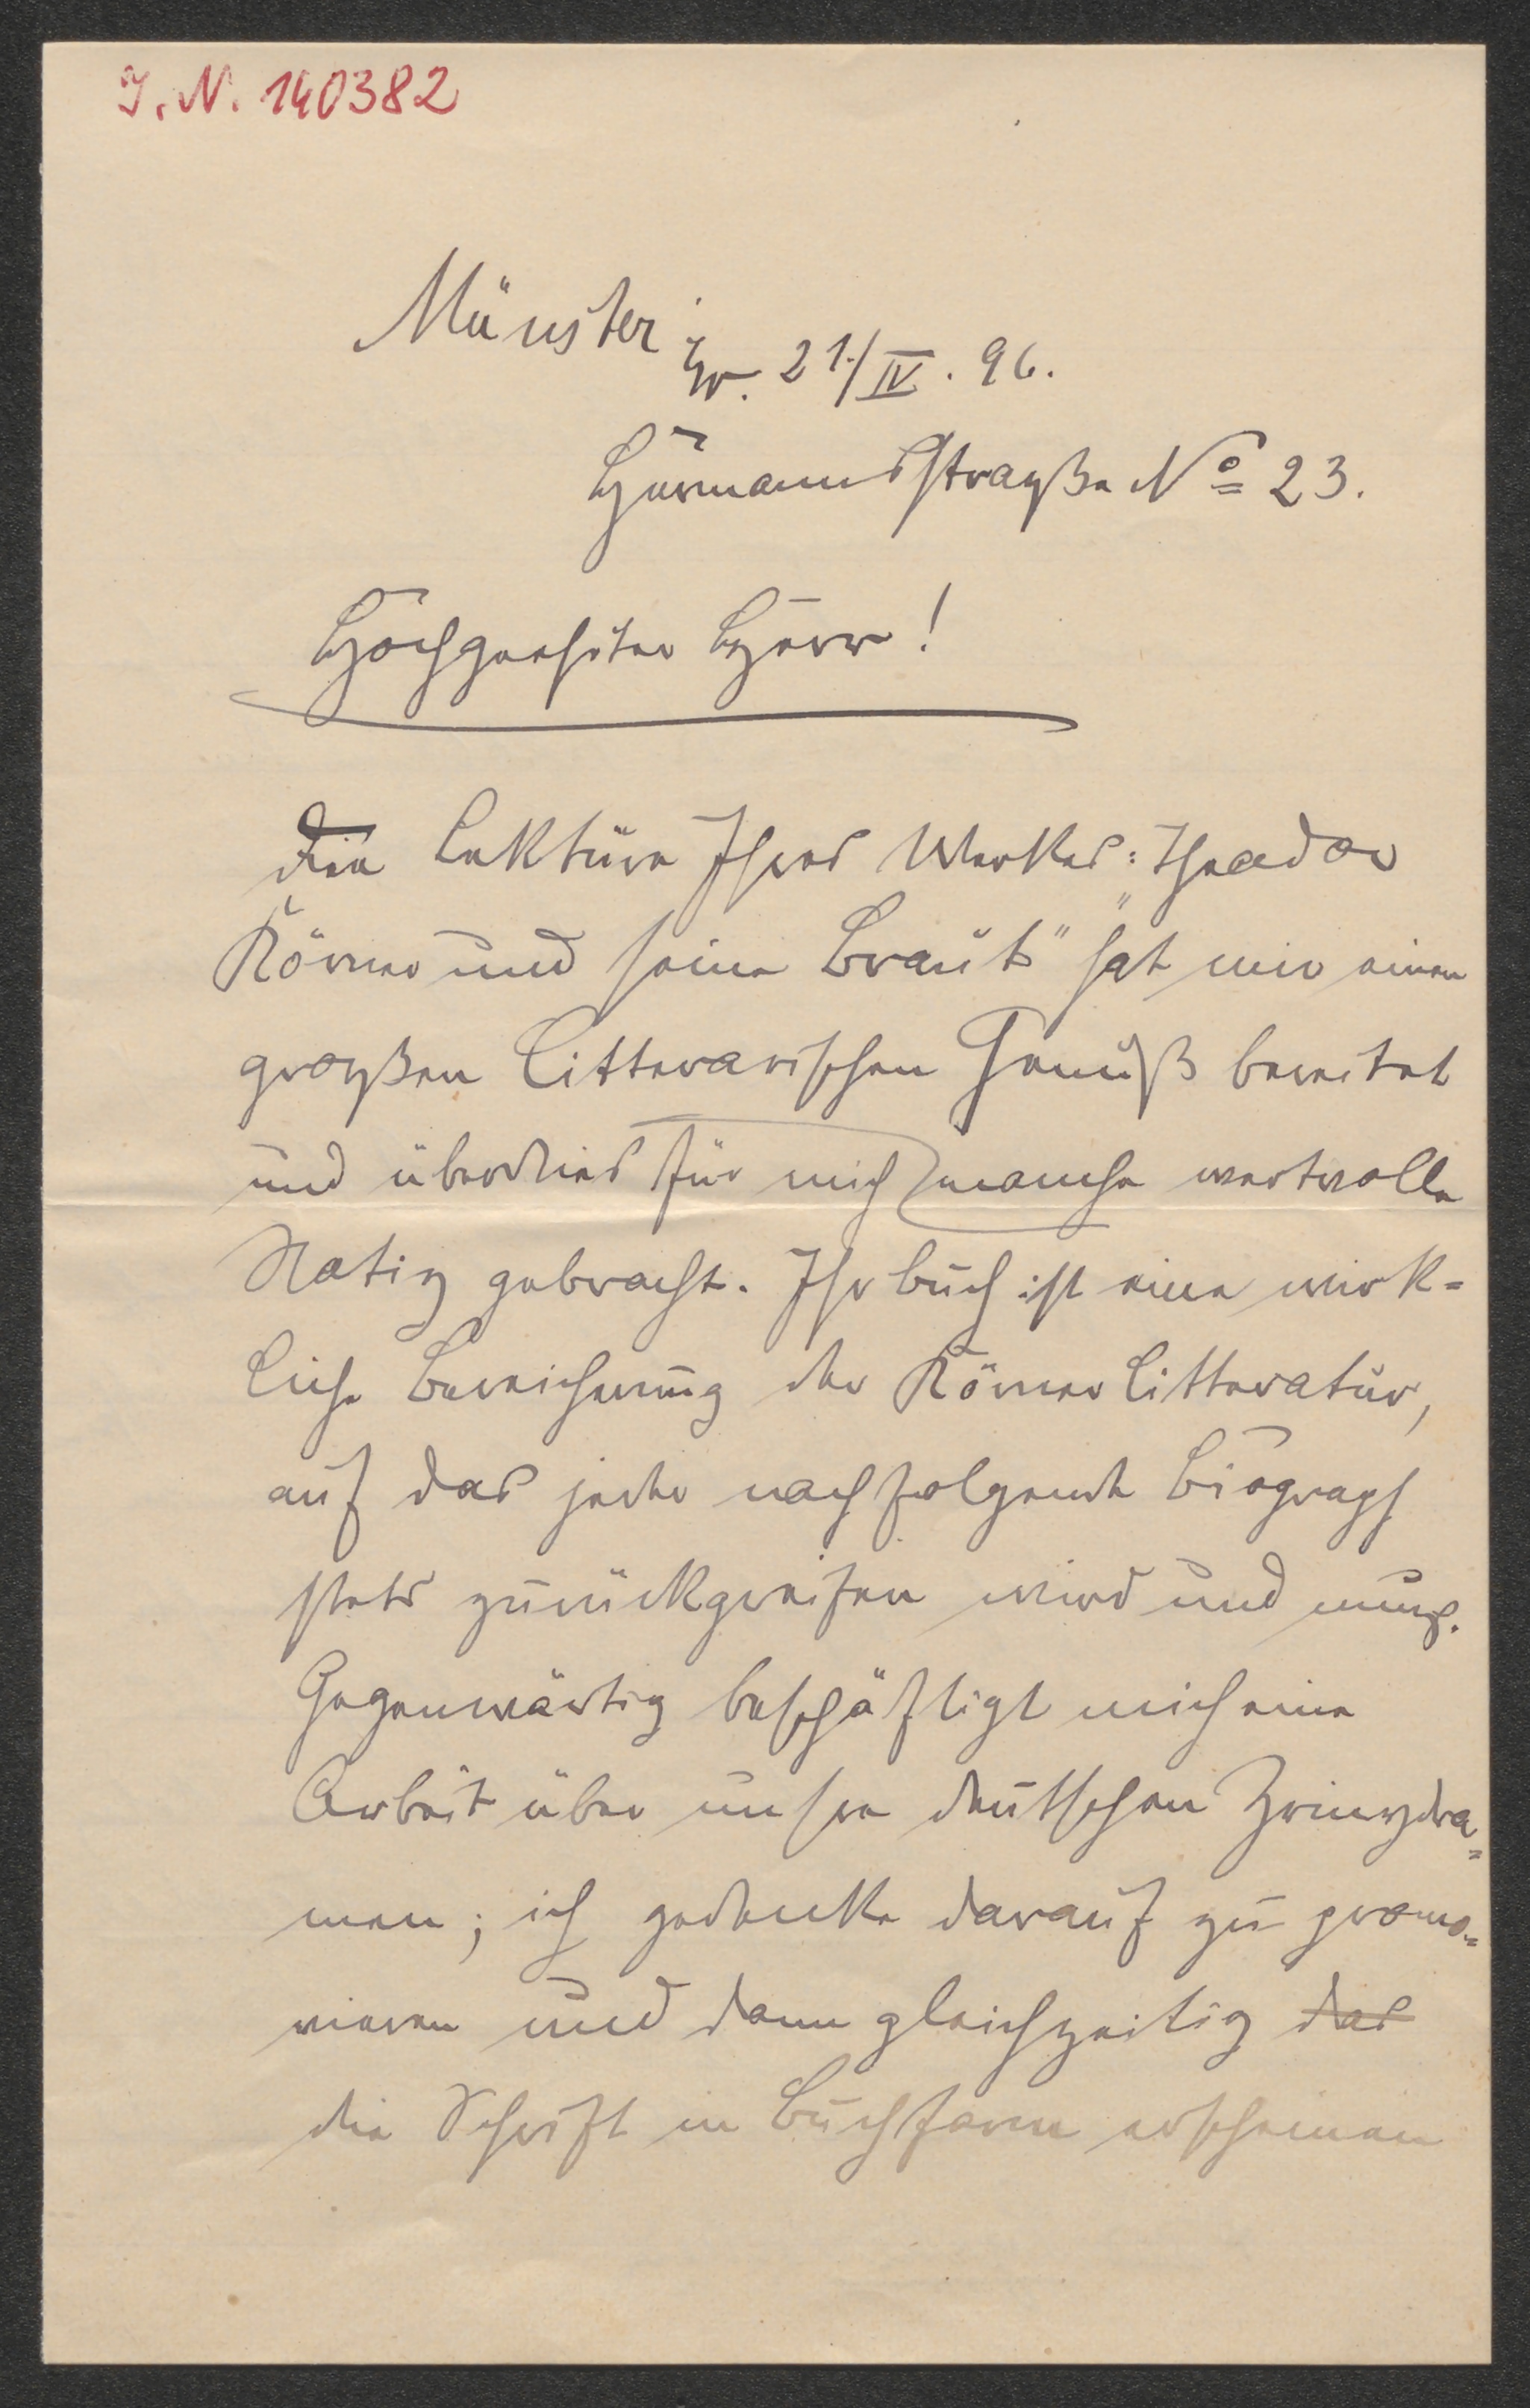 J. N. 140382
Münster i/w. 21./IV. 96.
Hermannstraße No 23.
Hochgeehrter Herr!
Die Lektüre Ihres Werkes: „Theodor
Körner und seine Braut“ hat mir einen
großen litterarischen Genuß bereitet
und überdies für mich manche wertvolle
Notiz gebracht. Ihr Buch ist eine wirk=
liche Bereicherung der Körner Litteratur,
auf das jeder nachfolgende Biograph
stets zurückgreifen wird und muß.
Gegenwärtig beschäftigt mich eine
Arbeit über unsere deutschen Zrinydra=
men; ich gedenke darauf zu promo=
vieren und dann gleichzeitig das
die Schrift in Buchform erscheinen